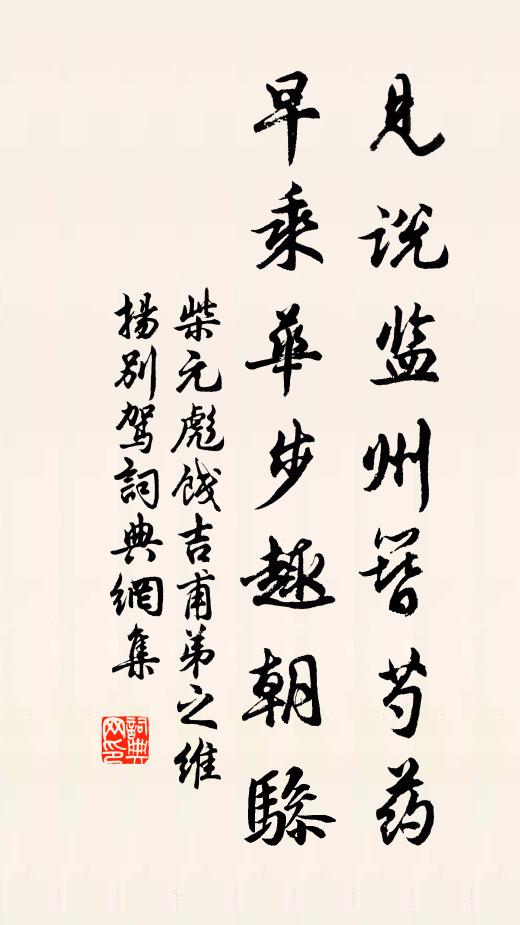 见说监州簪芍药
早乘华步趣朝骖
柴元彪饯吉甫弟之维
揚别驾詞典網集
詞典网印